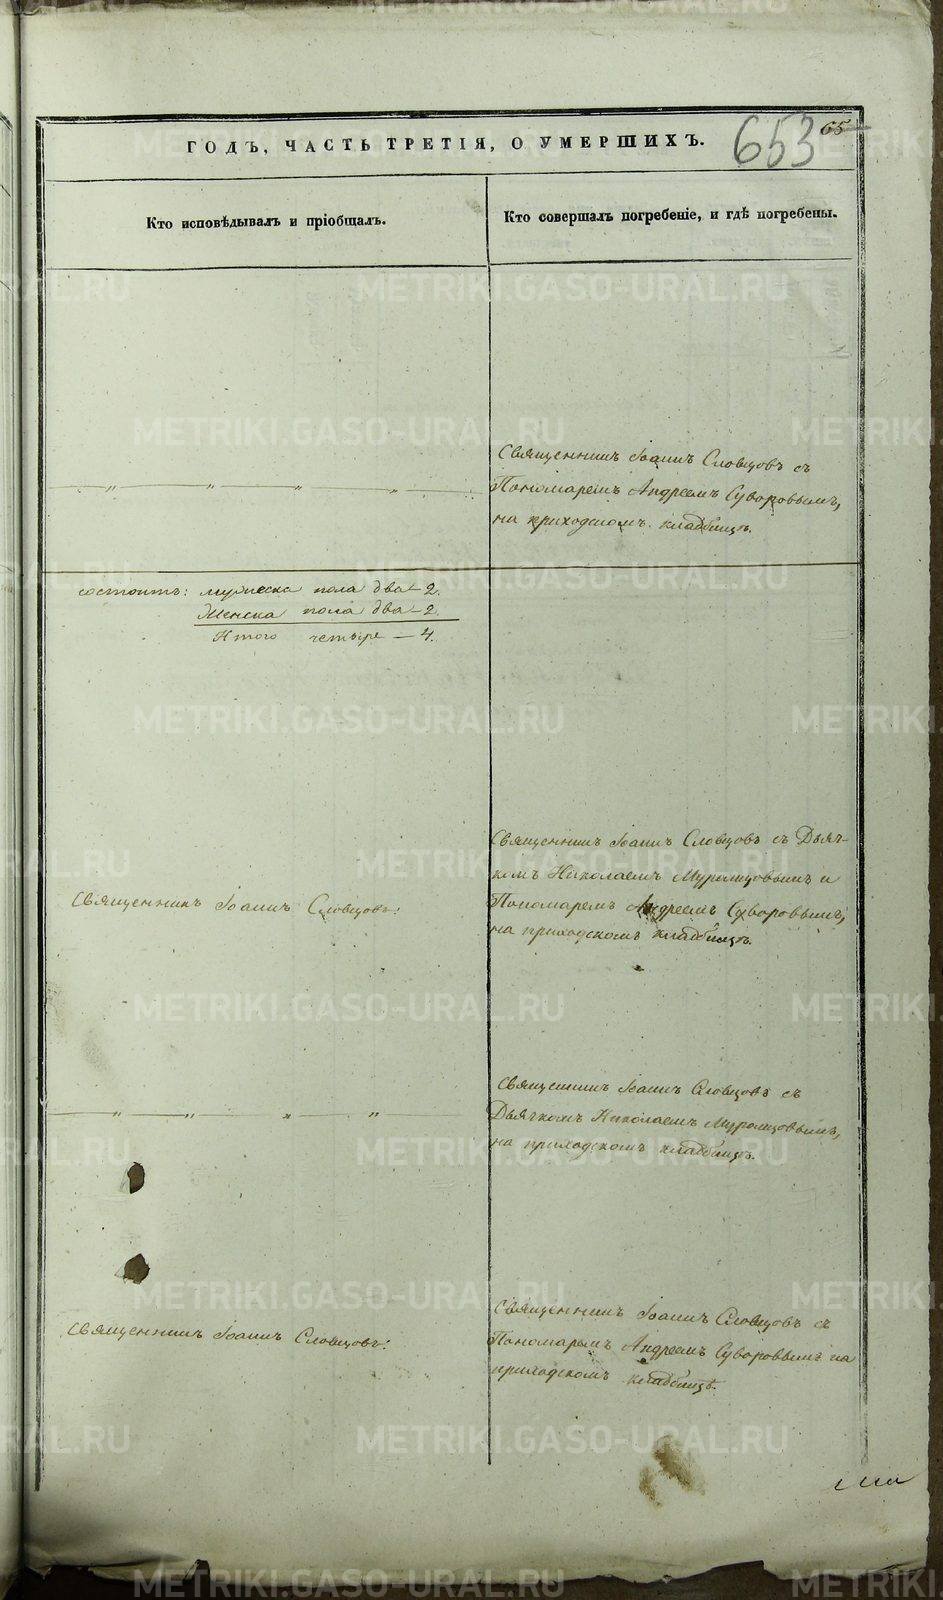 ГОДЪ, ЧАСТЬ ТРЕТІЯ, О УМЕРШИХЪ.
653
65
Кто исповѣдывалъ и пріобщалъ.
Кто совершалъ погребеніе, и гдѣ погребены.
Священникъ Іоаннъ Словцовъ съ
Пономаремъ Андреемъ Суворовымъ,
на приходскомъ кладбищѣ.
— „ — „ — „ — „ —
состоитъ: мужеска пола два – 2.
Женска пола два – 2.
Итого четыре – 4.
Священникъ Іоаннъ Словцовъ съ Дьяч-
комъ Николаемъ Муромцовымъ и
Пономаремъ Андреемъ Суворовымъ,
на приходскомъ кладбищѣ.
Священникъ Іоаннъ Словцовъ.
Священникъ Іоаннъ Словцовъ съ
Дьячкомъ Николаемъ Муромцовымъ,
на приходскомъ кладбищѣ.
— „ — „ — „ — „ —
Священникъ Іоаннъ Словцовъ съ
Пономаремъ Андреемъ Суворовымъ на
приходскомъ кладбищѣ.
Священникъ Іоаннъ Словцовъ.
METRIKI.GASO-URAL.RU